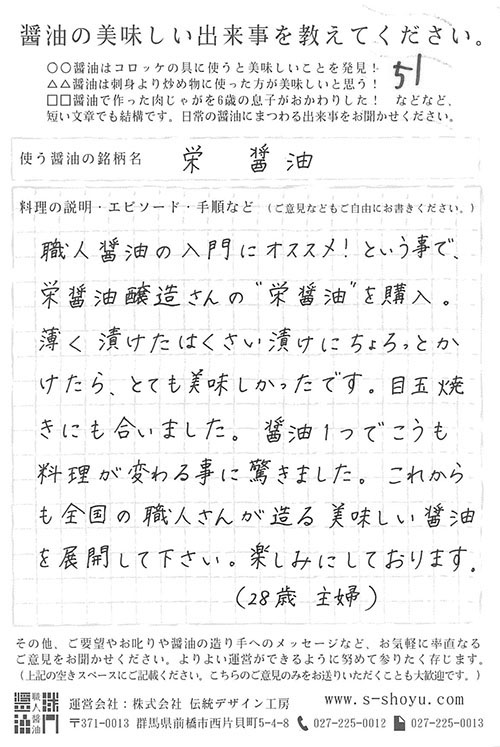 醤油の美味しい出来事を教えてください。
○○醤油はコロッケの具に使うと美味しいことを発見！
△△醤油は刺身より炒め物に使った方が美味しいと思う！
□□醤油で作った肉じゃがを6歳の息子がおかわりした！ などなど、
短い文章でも結構です。日常の醤油にまつわる出来事をお聞かせください。
51
使う醤油の銘柄名 栄 醤 油
料理の説明・エピソード・手順など （ご意見などもご自由にお書きください。）
職人醤油の入門にオススメ！という事で、
栄醤油醸造さんの“栄醤油”を購入。
薄く漬けたはくさい漬けにちょろっとか
けたら、とても美味しかったです。目玉焼
きにも合いました。醤油1つでこうも
料理が変わる事に驚きました。これから
も全国の職人さんが造る美味しい醤油
を展開して下さい。楽しみにしております。
（28歳 主婦）
その他、ご要望やお叱りや醤油の造り手へのメッセージなど、お気軽に率直なる
ご意見をお聞かせください。よりよい運営ができるように努めて参りたく存じます。
（上記の空きスペースにご記載ください。こちらのご意見のみをお送りいただくことも大歓迎です。）
職人醤油
運営会社：株式会社 伝統デザイン工房 www.s-shoyu.com
〒371-0013 群馬県前橋市西片貝町5-4-8 027-225-0012 027-225-0013